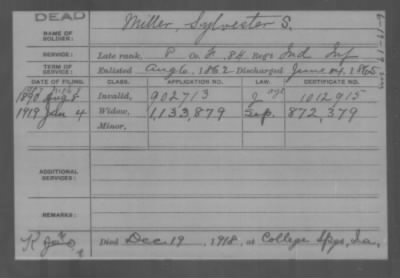 DEAD
NAME OF SOLDIER: Miller, Sylvester S.
SERVICE: Late rank, P Co. F, 84 Reg't Ind Inf
TERM OF SERVICE: Enlisted Aug 6, 1862 Discharged June 14, 1865
DATE OF FILING. CLASS. APPLICATION NO. LAW. CERTIFICATE NO.
1890 Aug 8 Invalid, 902713 1012915
1919 Jan 4 Widow, 1,133,879 Sep. 872,379
Minor,
ADDITIONAL SERVICES:
REMARKS:
Died Dec 19, 1918, at College Spgs, Ia,